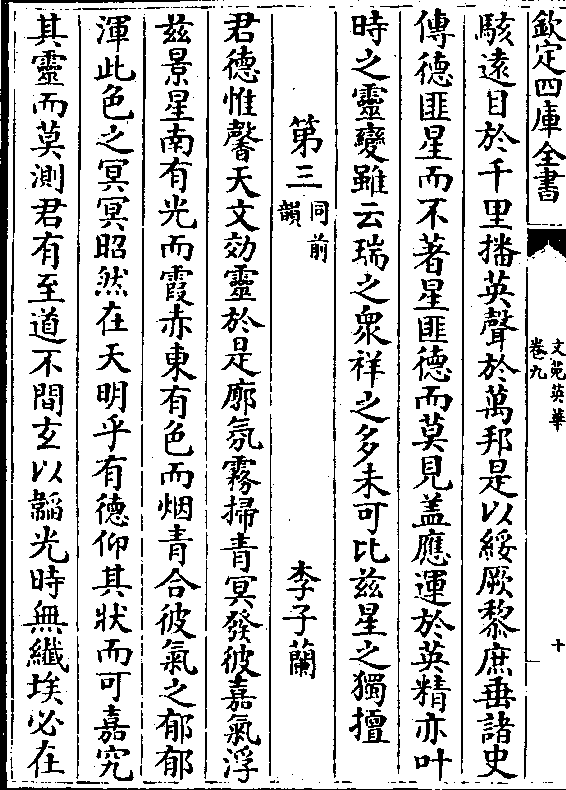 欽定四庫全書
文苑英華
卷九
十
駭逺目於千里播英聲於萬邦是以綏厥黎庶垂諸史
傳德匪星而不著星匪德而莫見盖應運於英精亦叶
時之靈變雖云瑞之衆祥之多未可比兹星之獨擅
第三同前韻 李子蘭
君德惟馨天文効靈於是廓氛霧掃青冥發彼嘉氣浮
兹景星南有光而霞赤東有色而烟青合彼氣之郁郁
渾此色之冥冥昭然在天明乎有德仰其狀而可嘉究
其靈而莫測君有至道不間玄以韜光時無纖埃必在